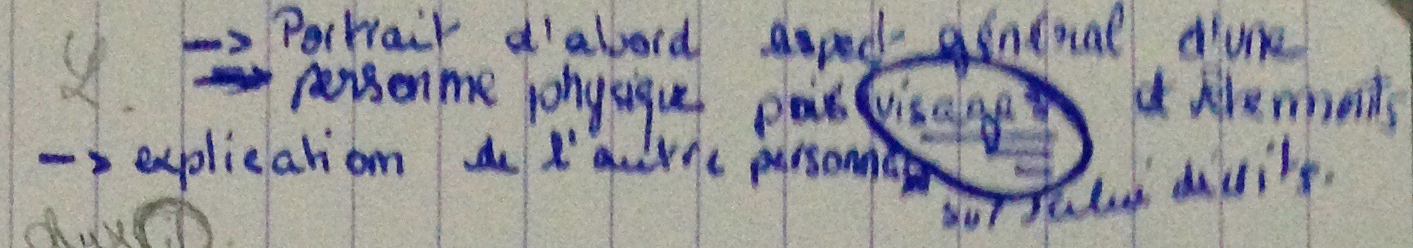 -> Portrait d'abord aspect général d'une
-> personne physique puis visage et vêtements
-> explication de l'autre personne
sur celui décrits.